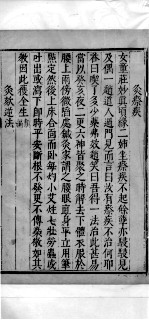 灸瘵疾
女童莊妙真頃緣二姊坐瘵疾不起餘孽亦駸駸見
及偶一趙道人過門見而言曰汝有瘵疾不治何耶
答曰喫了多少藥弗效趙笑曰吾得一法治此甚易
當以癸亥夜二更六神皆聚之時解去下體衣服於
腰上兩傍微陷處鍼灸家謂之腰眼直身平立用筆
點定然後上床合面而卧每灼小艾炷七壯勞蠱或
吐出或瀉下即時平安斷根不發更不傳染敬如其
教因此獲全生
灸欬逆法